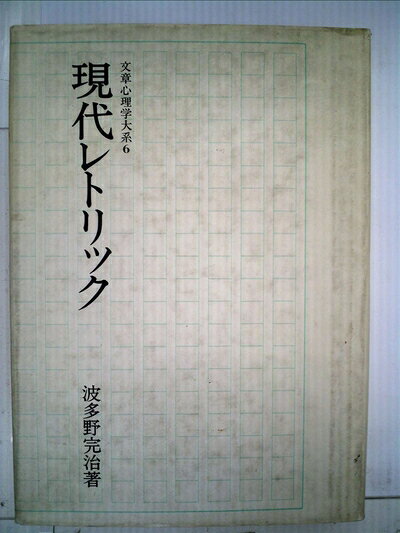 文章心理学大系6
現代レトリック
波多野完治著